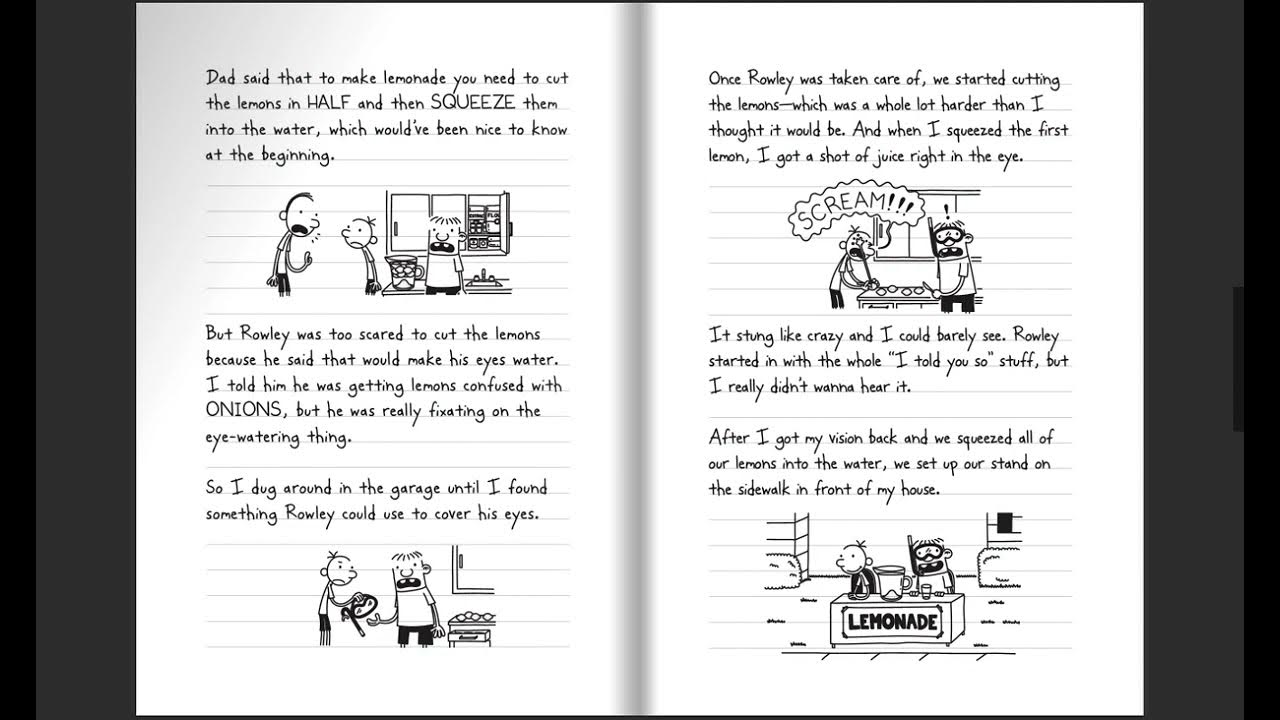 Dad said that to make lemonade you need to cut
the lemons in HALF and then SQUEEZE them
into the water, which would've been nice to know
at the beginning.
But Rowley was too scared to cut the lemons
because he said that would make his eyes water.
I told him he was getting lemons confused with
ONIONS, but he was really fixating on the
eye-watering thing.
So I dug around in the garage until I found
something Rowley could use to cover his eyes.
Once Rowley was taken care of, we started cutting
the lemons—which was a whole lot harder than I
thought it would be. And when I squeezed the first
lemon, I got a shot of juice right in the eye.
SCREAM!!!
!
It stung like crazy and I could barely see. Rowley
started in with the whole "I told you so" stuff, but
I really didn't wanna hear it.
After I got my vision back and we squeezed all of
our lemons into the water, we set up our stand on
the sidewalk in front of my house.
LEMONADE